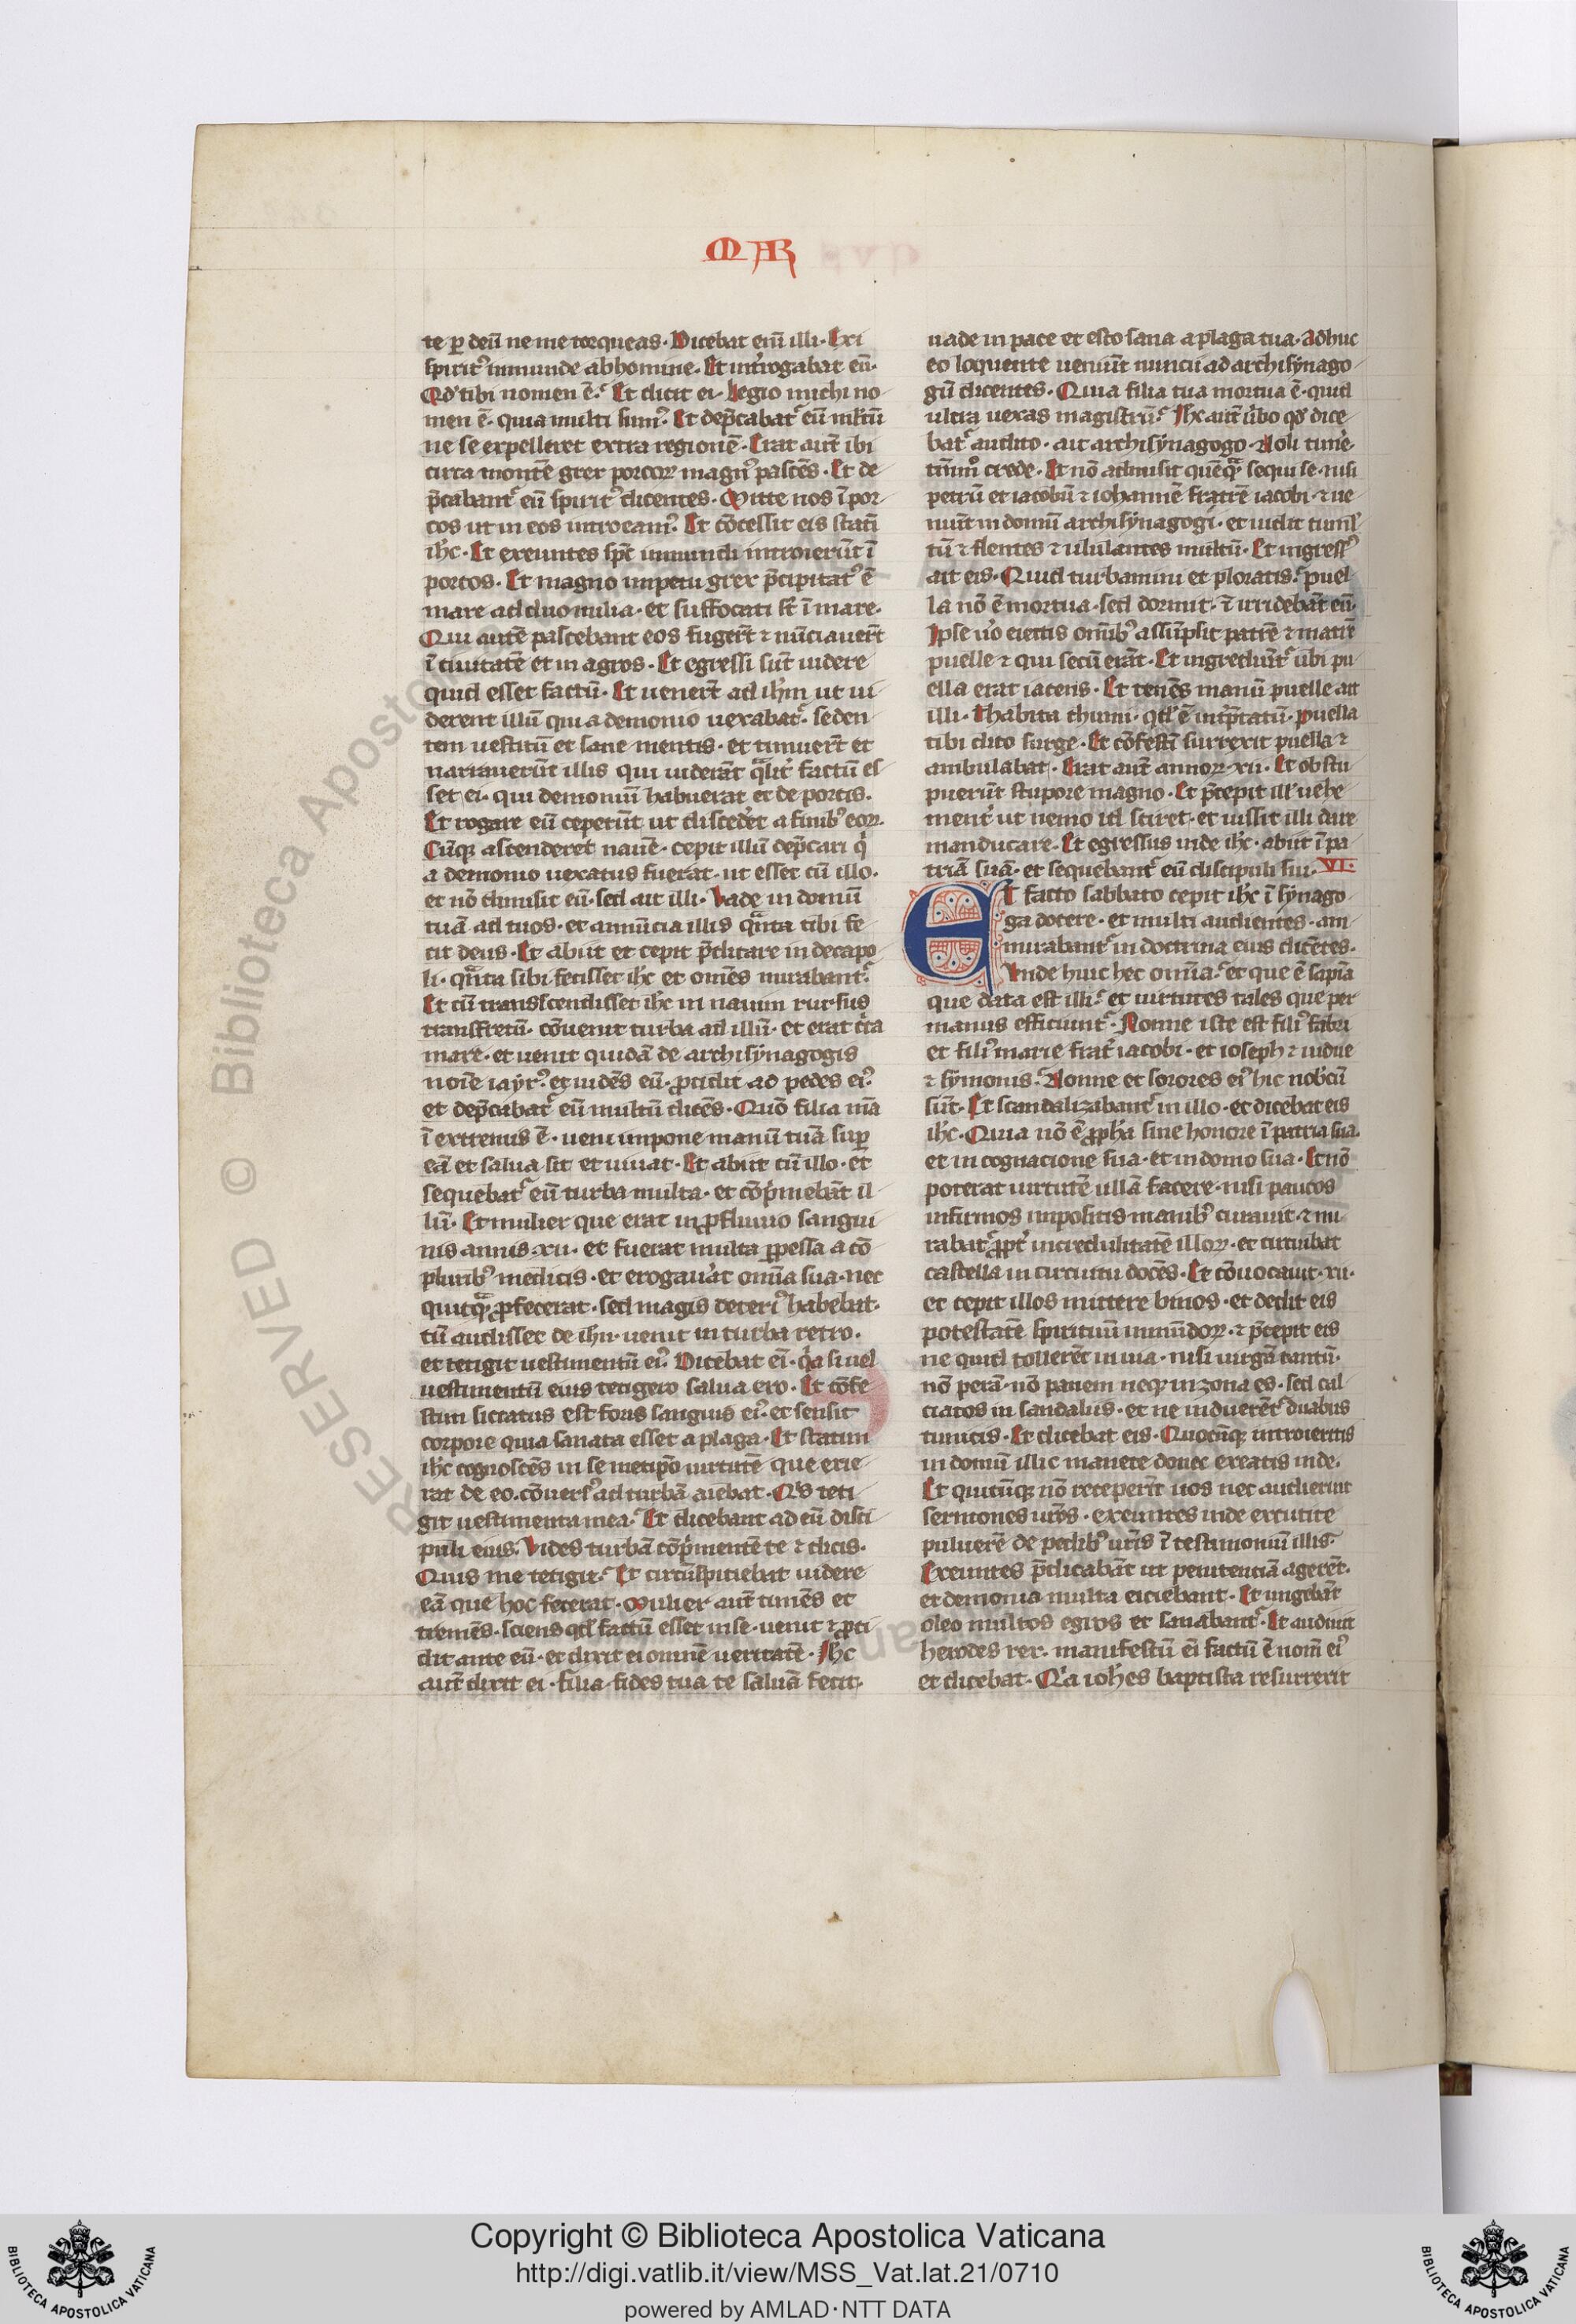 MAR
te ꝑ deū ne me torqueas· Dicebat eni᷒ illi· Exi
spirit᷒ inmunde ab homine· Et int᷒rogabat eū·
Qd᷒ tibi nomen ē? Et dicit ei· Legio michi no
men ē· quia multi sum᷒· Et dep̄cabat᷒ eū mltū
ne se expelleret extra regionē· Erat aut̄ ibi
circa montē grex porcoꝝ magn᷒ pascēs· Et de
p̄cabant᷒ eū spirit᷒ dicentes· Mitte nos ī por
cos ut in eos introeam᷒· Et cōcessit eis stati᷒
ih᷒c· Et exeuntes sp̄c inmundi introierūt ī
porcos· Et magno impetu grex p̄cipitat᷒ ē
mare ad duo milia· et suffocati st̄ ī mare·
Qui autē pascebant eos fugert̄ ⁊ nūciauert̄
ī ciuitatē et in agros· Et egressi sūt uidere
quid esset factū· Et uenert̄ ad ih᷒m ut ui
derent illū qui a demonio uexabat᷒· seden
tem uestitū et sane mentis· et timuert̄ et
narrauerūt illis qui uiderāt qͣlit᷒ factū es
set ei· qui demoniū habuerat et de porcis·
Et rogare eū ceperūt ut disceder᷒t a finib᷒ eoꝝ·
Cūqꝫ ascenderet nauē· cepit illū dep̄cari q᷒
a demonio uexatus fuerat· ut esset cū illo·
et nō dimisit eū· sed ait illi· Vade in domū
tuā ad tuos· et annūcia illis qͣnta tibi fe
cit deus· Et abiit et cepit p̄dicare in decapo
li· qͣnta sibi fecisset ih᷒c et omēs mirabant᷒·
Et cū transscendisset ih᷒c in nauim rursus
transfretū· cōuenit turba ad illū· et erat cͥca
mare· et uenit quidā de archisynagogis
noīe iayr᷒· et uidēs eū· ꝓcidit ad pedes ei᷒·
et dep̄cabat᷒ eū multū dicēs· Quō filia m̄a
ī extremis ē· ueni impone manū tuā suꝑ
eā et salua sit et uiuat· Et abiit cū illo· et
sequebat᷒ eū turba multa· et cōpͥmebāt il
lū· Et mulier que erat in ꝓfluuio sangui
nis annis·xii· et fuerat multa ꝑpessa a cō
plurib᷒ medicis· et erogauāt omīa sua· nec
quitqͣ ꝓfecerat· sed magis deteri᷒ habebat·
cū audisset de ihu· uenit in turba retro·
et tetigit uestimentū ei᷒· Dicebat ei᷒· qͥa si uel
uestimentū eius tetigero salua ero· Et cōfe
stim siccatus est fons sanguis ei᷒· et sensit
corpore quia sanata esset a plaga· Et statim
ih᷒c cognoscēs in se metipō uirtutē que exie
rat de eo· cōuers᷒ ad turbā aiebat· Qͥs teti
git uestimenta mea? Et dicebant ad eū disci
puli eius· Vides turbā cōpͥmentē te ⁊ dicis·
Quis me tetigit? Et circūspitiebat uidere
eā que hoc fecerat· Mulier aut̄ timēs et
tremēs· sciens qd᷒ factū esset in se· uenit ⁊ ꝓci
dit ante eū· et dixit ei omnē ueritatē· Ih᷒c
aut̄ dixit ei· filia fides tua te saluā fecit·
uade in pace et esto sana a plaga tua· Adhuc
eo loquente ueniūt nuncii ad archisynago
gū dicentes· Quia filia tua mortua ē· quid
ultra uexas magistrū? Ihc aut̄ u᷒bo qd᷒ dice
bat᷒ audito· ait archisynagogo· Noli tim᷒e·
tm̄m᷒ crede· Et nō admisit quēqͣ sequi se· nisi
petrū et iacobū ⁊ iohannē fratrē iacobi· ⁊ ue
niūt in domū archisynagogi· et uidit tuml᷒
tū ⁊ flentes ⁊ ululantes multū· Et ingress᷒
ait eis· Quid turbamini et ploratis? puel
la nō ē mortua· sed dormit· ⁊ irridebāt eū·
Ipse uͦo eiectis omib᷒ assūpsit patrē ⁊ matrē
puelle ⁊ qui secū erāt· Et ingrediūt᷒ ubi pu
ella erat iacens· Et tenēs manū puelle ait
illi· Thabita chumi· qd᷒ ē int᷒p̄tatū· puella
tibi dico surge· Et cōfestī surrexit puella ⁊
ambulabat· Erat aut̄ annoꝝ·xii· Et obstu
puerūt stupore magno· Et p̄cepit ill᷒ uehe
ment᷒ ut nemo id sciret· et iussit illi dare
manducare· Et egressus inde ih᷒c· abiit ī pa
triā suā· et sequebant᷒ eū discipuli sui· VI·
Et facto sabbato cepit ih᷒c ī synago
ga docere· et multi audientes· am
mirabant᷒ in doctrina eius dicētes·
Vnde huic hec omīa? et que ē sapīa
que data est illi? et uirtutes tales que per
manus efficiunt᷒· Nonne iste est fili᷒ fabri
et fili᷒ marie frat᷒ iacobi· et ioseph ⁊ iudue
⁊ symonis? Nonne et sorores ei᷒ hic nob᷒cū
sūt· Et scandalizabant᷒ in illo· et dicebat eis
ih᷒c· Quia nō ē ꝓph᷒a sine honore ī patria sua·
et in cognacione sua· et in domo sua· Et nō
poterat uirtutē ullā facere· nisi paucos
infirmos impositis manib᷒ curauit· ⁊ mi
rabat᷒ ꝓpt᷒ incredulitatē illoꝝ· et circuibat
castella in circuitu docēs· Et cōuocauit·xii·
et cepit illos mittere binos· et dedit eis
potestatē spirituū inmūdoꝝ· ⁊ p̄cepit eis
ne quid tollerēt in uia· nisi uirgā tantū·
nō perā· nō panem neqꝫ in zona es· sed cal
ciatos in sandaliis· et ne induerēt᷒ duabus
tunicis· Et dicebat eis· Quocūqꝫ introieritis
in domū illic manete donec exeatis inde·
Et quicūqꝫ nō receperīt uos nec audierint
sermones ur̄os· exeuntes inde excutite
puluerē de pedib᷒ ur̄is ī testimoniū illis·
Exeuntes p̄dicabāt ut penitenciā agerēt·
et demonia multa eiciebant· Et ungebāt
oleo multos egros et sanabant᷒· Et audiuit
herodes rex· manifestū ei᷒ factū ē nom̄ ei᷒
et dicebat· Qͥa ioh᷒es baptista resurrexit
RESERVED © Biblioteca Apostol
BIBLIOTECA APOSTOLICA VATICANA
Copyright © Biblioteca Apostolica Vaticana
http://digi.vatlib.it/view/MSS_Vat.lat.21/0710
powered by AMLAD·NTT DATA
BIBLIOTECA APOSTOLICA VATICANA